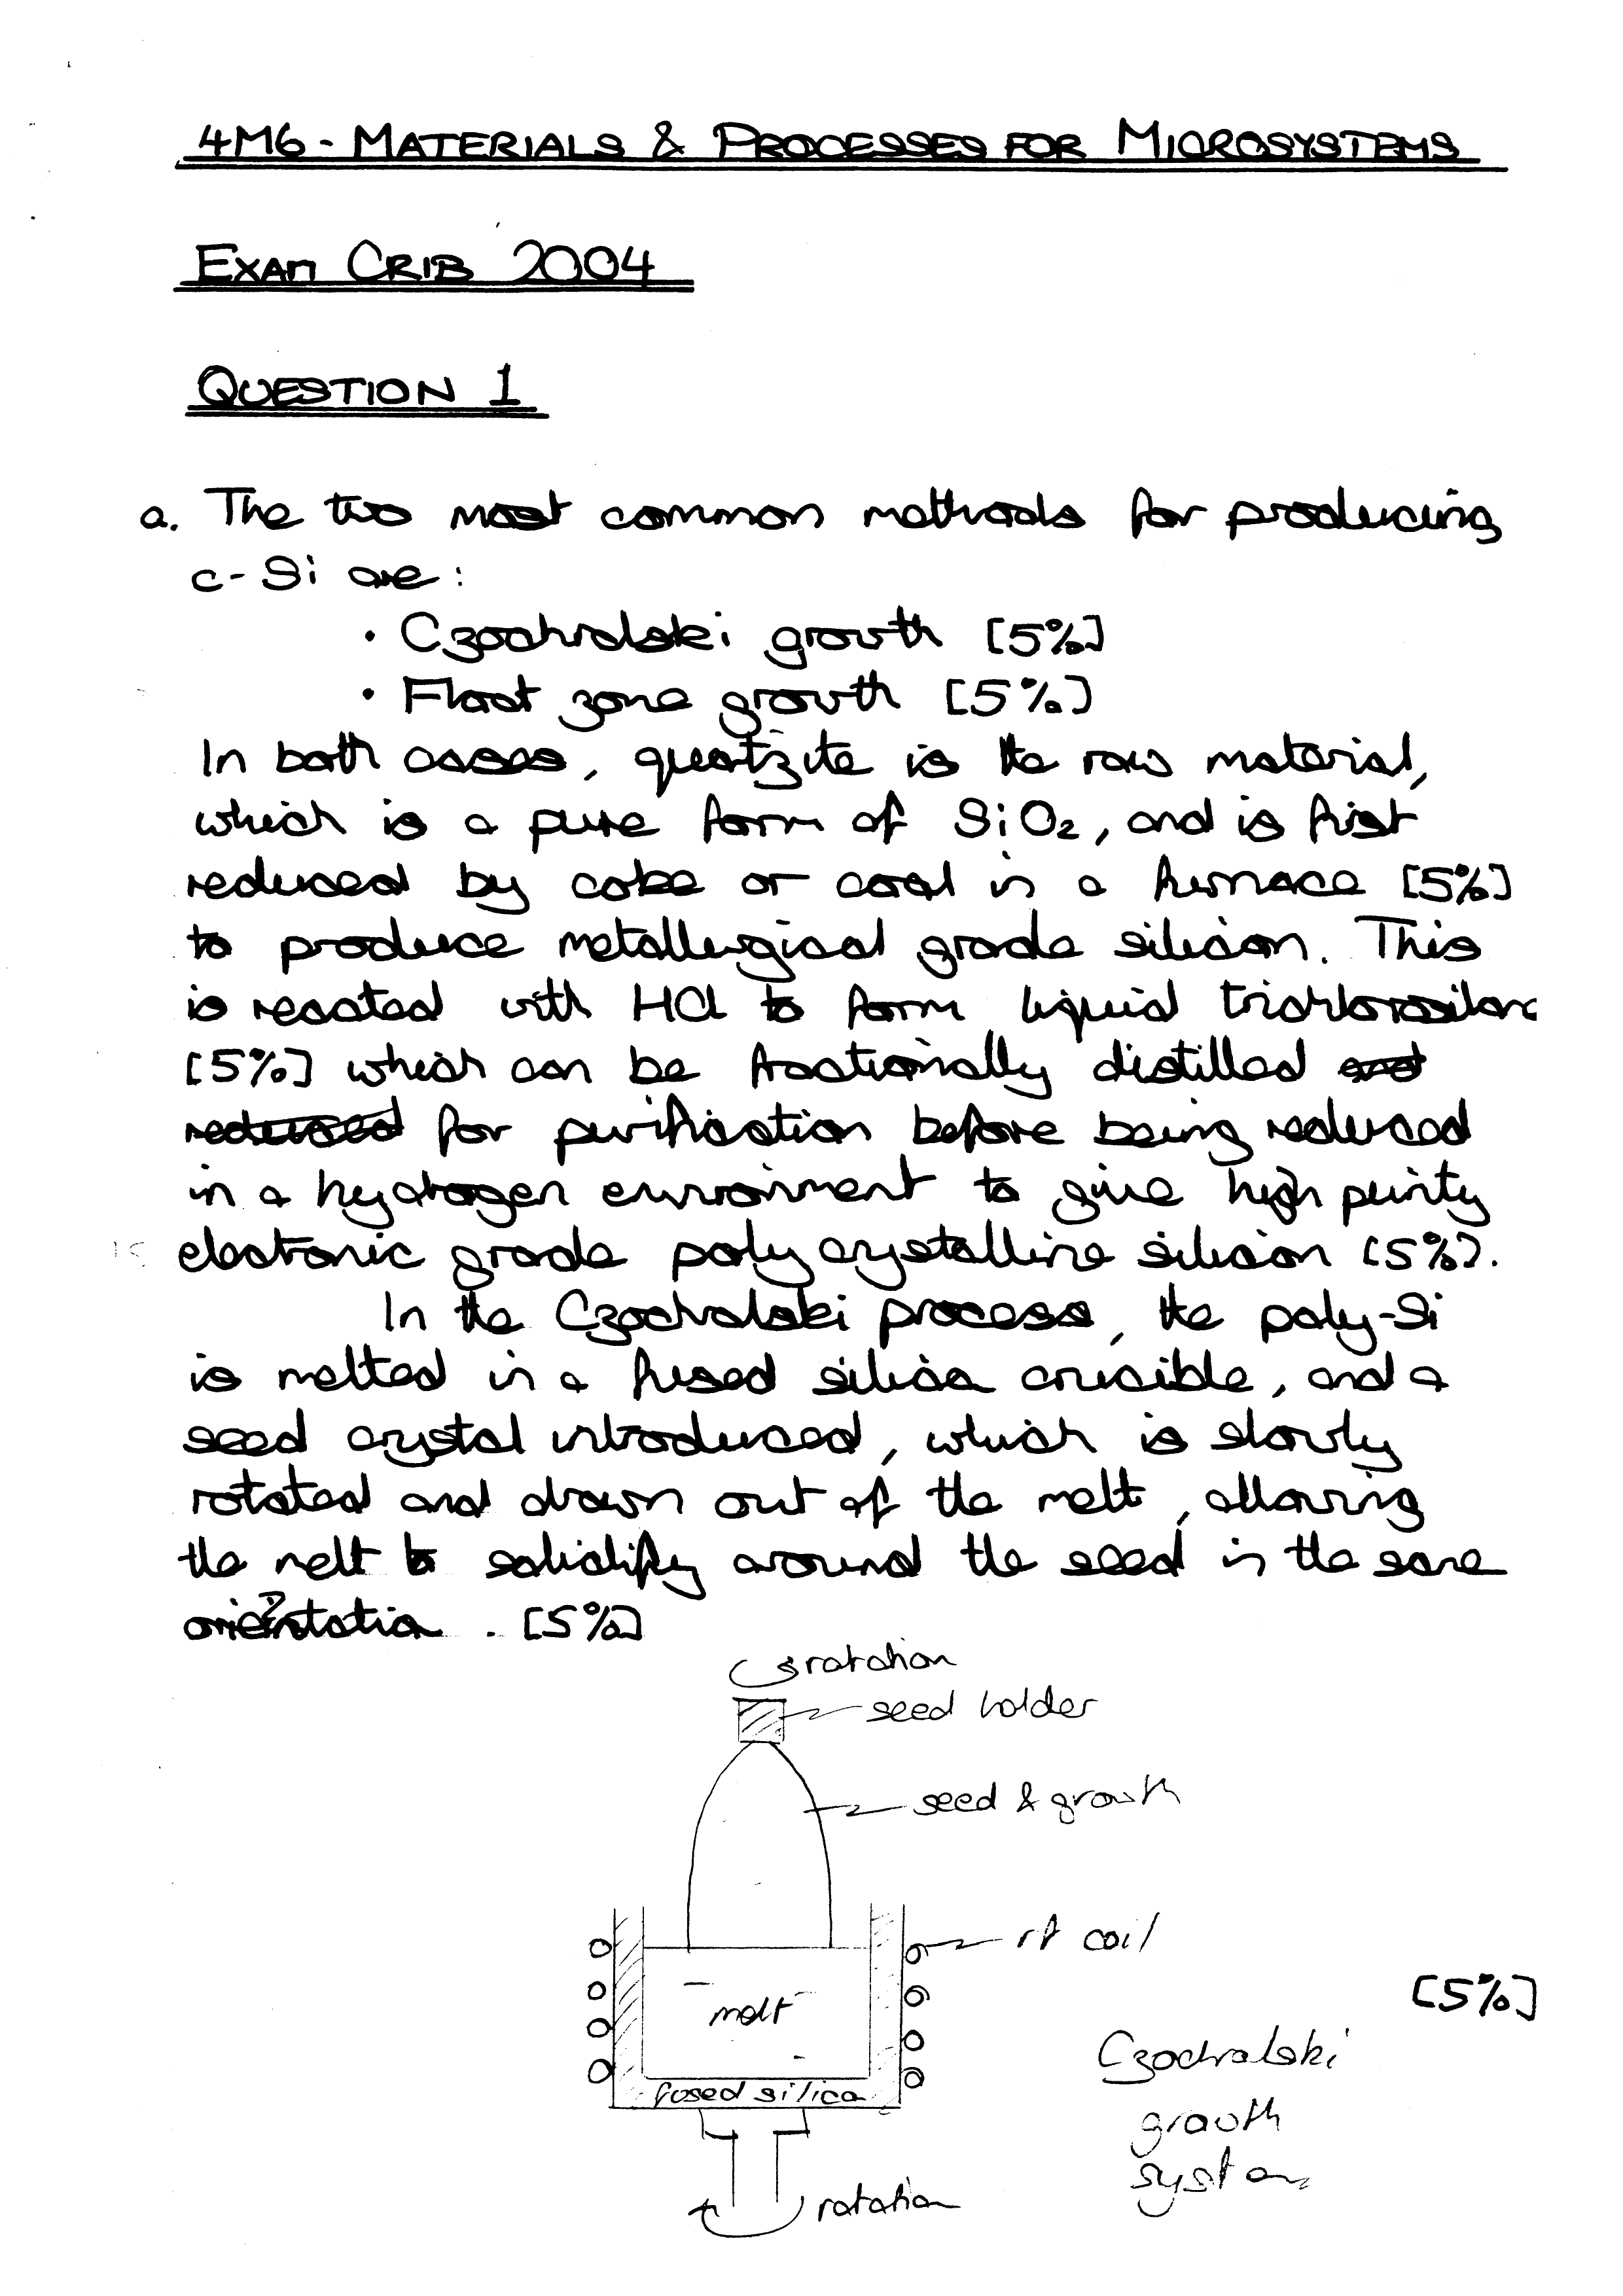 4M6 - MATERIALS & PROCESSES FOR MICROSYSTEMS
EXAM CRIB 2004
QUESTION 1
a. The two most common methods for producing
c-Si are:
• Czochralski growth [5%]
• Float zone growth [5%]
In both cases, quartzite is the raw material,
which is a pure form of SiO₂, and is first
reduced by coke or coal in a furnace [5%]
to produce metallurgical grade silicon. This
is reacted with HCl to form liquid trichlorosilane
[5%] which can be fractionally distilled and
reduced for purification before being reduced
in a hydrogen environment to give high purity
electronic grade poly crystalline silicon [5%].
In the Czochralski process, the poly-Si
is melted in a fused silica crucible, and a
seed crystal introduced, which is slowly
rotated and drawn out of the melt, allowing
the melt to solidify around the seed in the same
orientation. [5%]
rotation
seed holder
seed & growth
rf coil
[5%]
melt
Czochralski
fused silica
growth
system
rotation